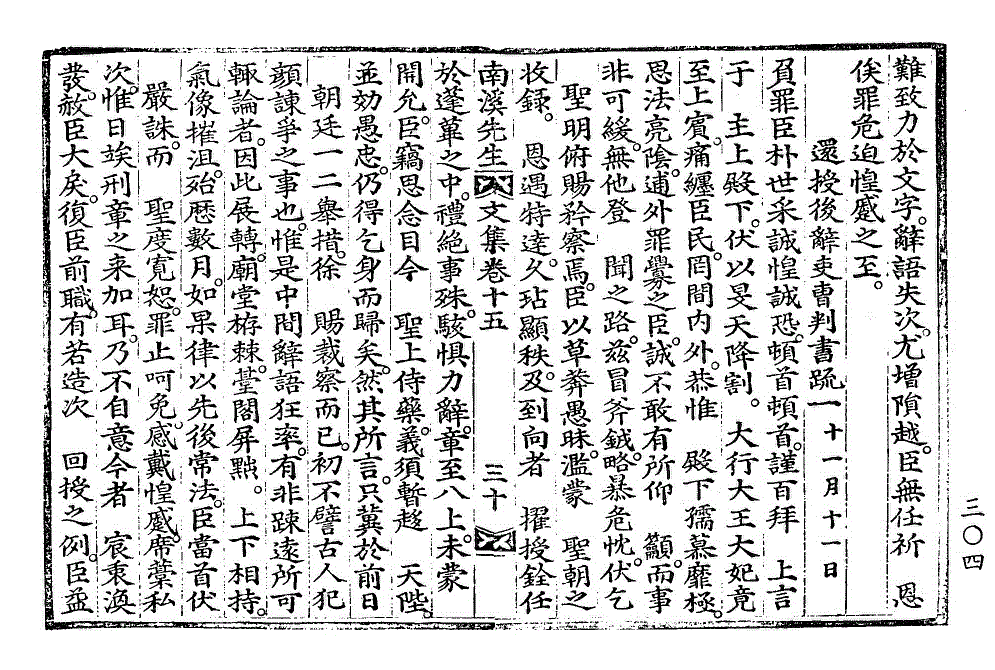 難致力於文字。辭語失次。尤增隕越。臣無任祈 恩
俟罪危迫惶蹙之至。
還授後辭吏曹判書疏一 十一月十一日
負罪臣朴世采誠惶誠恐。頓首頓首。謹百拜 上言
于 主上殿下。伏以旻天降割。 大行大王大妃竟
至上賓。痛纏臣民。罔間內外。恭惟 殿下孺慕靡極。
思法亮陰。逋外罪釁之臣。誠不敢有所仰 籲。而事
非可緩。無他登 聞之路。玆冒斧鉞。略暴危忱。伏乞
聖明俯賜矜察焉。臣以草莽愚昧。濫蒙 聖朝之
收錄。 恩遇特達。久玷顯秩。及到向者 擢授銓任
南溪先生文集卷十五 三十
於蓬蓽之中。禮絶事殊。駭惧力辭。章至八上。未蒙
開允。臣竊思念日今 聖上侍藥。義須暫趍 天陛。
並効愚忠。仍得乞身而歸矣。然其所言。只冀於前日
朝廷一二擧措。徐 賜裁察而已。初不譬古人犯
顔諫爭之事也。惟是中間辭語狂率。有非踈遠所可
輒論者。因此展轉。廟堂栫棘。臺閣屛黜。 上下相持。
氣像摧沮。殆歷數月。如果律以先後常法。臣當首伏
嚴誅。而 聖度寬恕。罪止呵免。感戴惶蹙。席藁私
次。惟日竢刑章之來加耳。乃不自意今者 宸衷渙
發。赦臣大戾。復臣前職。有若造次 回授之例。臣益
三〇四